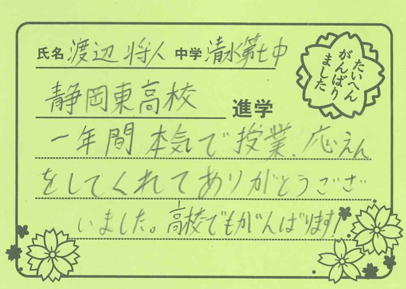 氏名 渡辺 将人 中学 清水第七中
たいへん
がんばり
ました
静岡東高校 進学
一年間 本気で授業、応えん
をしてくれてありがとうござ
いました。高校でもがんばります!